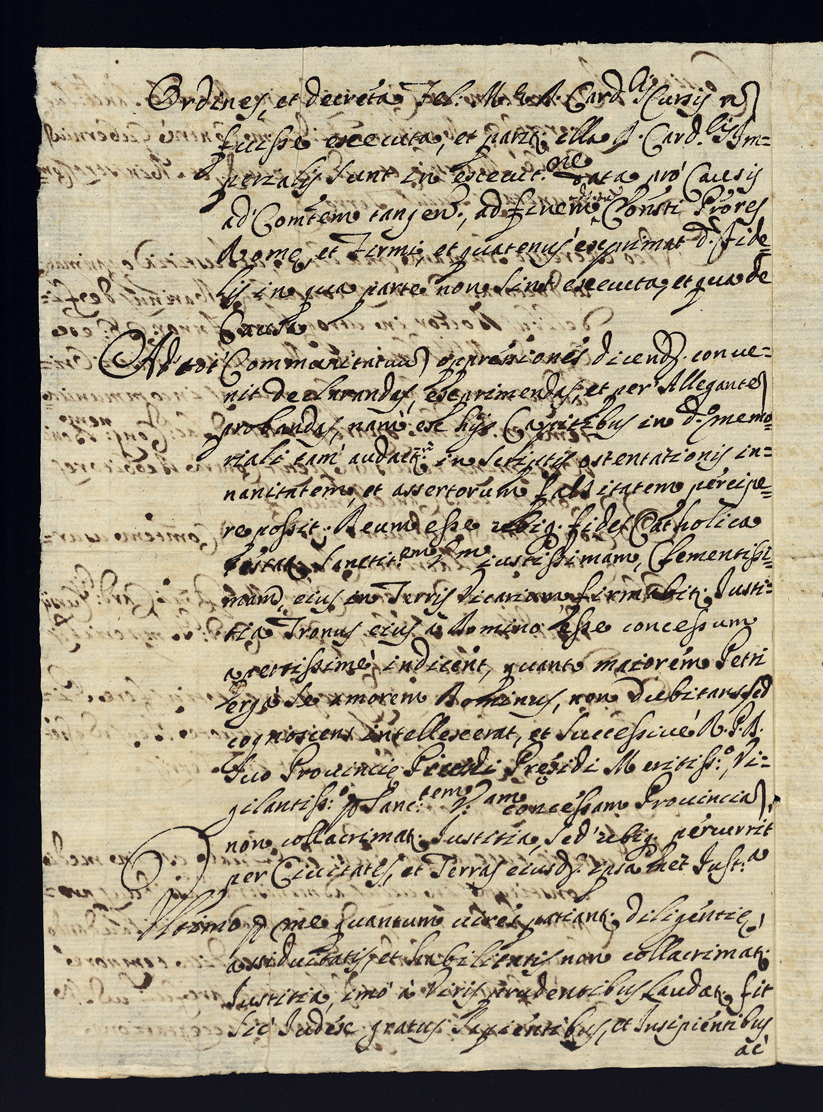 Ordines, et decreta Fel: M. A. Card.lis Cursij
fuisse executa, et pariter illa A. Card.lis Im=
perialis sunt in execut.ne data pro' Causis
ad' Comtem tangen., ad finem Consti Prores
Rome, et Firmi, et quatenus exprimat d. fide=
lis in qua parte non sint executa, et qua de
Causa
Ad tot Communitatum oppressiones dicend. conve=
nit declarandas, exprimendas, et per Allegantes
probandas, nam ex hijs Capitibus in d.o memo=
riali tam audact.r in scriptis ostentationis in=
nanitatem, et assertorum falsitatem percipe=
re possit. Reum esse ubiq. fides Catholica
testat. Sanctit.em iustissimam, Clementissi=
mam, eius in Terris Vicariam firmabit. Justi=
tia Tronus eius à Domino esse concessum
apertissimè indicent, quanto maiorem Petri
ergà se amorem Dominus, non dubitans sed
cognoscens intellexerat, et successivè R. P. D.
suo Provincie Piceni Presidi Meritiss.o, Vi=
gilantiss.o p Sanc.tem V.am concessam Provincia,
non collacrimat. Justitia, sed ubiq. percurrit
per Civitates, et Terras eiusd. ipsa met Just.a
Ultimo p me quantum vires patiant. diligentie,
assiduitatis, et habilitatis non collacrimat.
Justitia, imò à Viris prudentibus laudat., fit
sic Judex gratus Sapientibus, et Insipientibus
ac